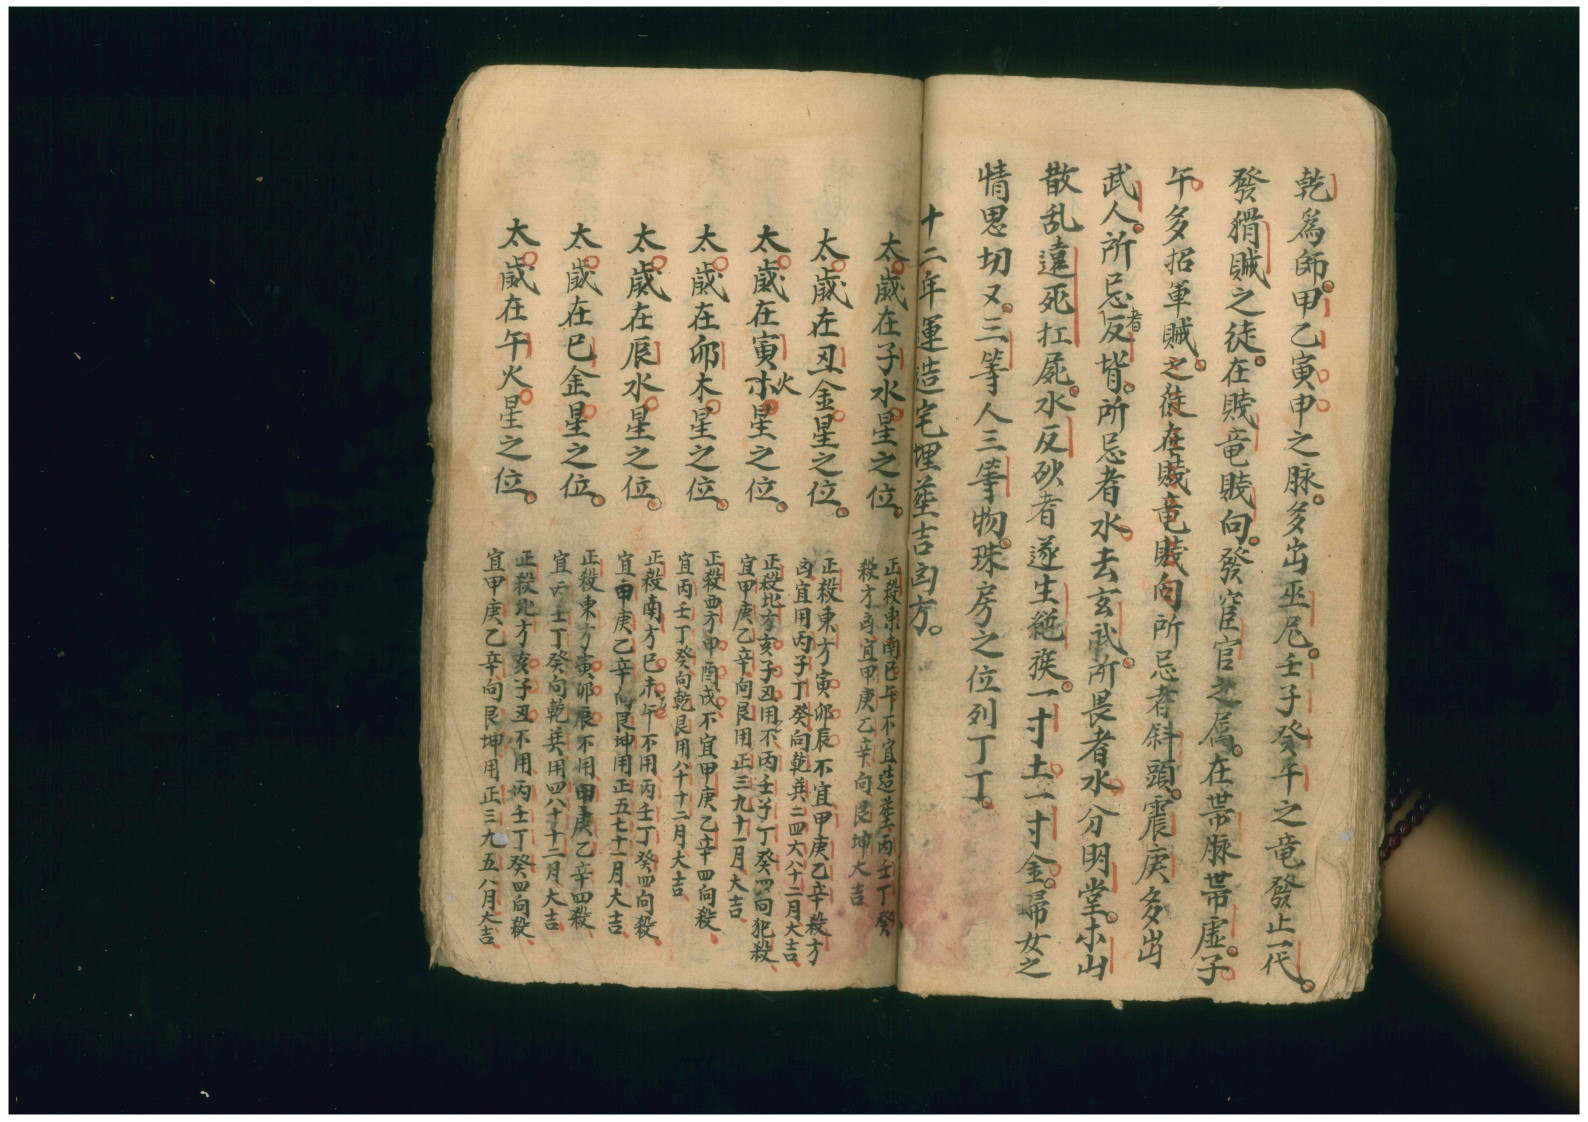 乾為師。甲乙寅申之脉。多出巫尼。壬子癸千之竜發止一代。
發猾賊之徒。在賎竜賎向。發宦官之属。在帯脉帯虛。子
午多招軍賊。之徒在賎竜賎向所忌者斜頭。震庚多出
武人。所忌者反背。所忌者水去玄武。所畏者水分明堂。木山
散乱遠死扛屍。水反砍者遂生絶族。一寸土一寸金。帚女之
情思切又。三等人三等物。珠房之位列丁丁。
十二年運造宅埋塟吉凶方。
太歲在子水星之位。
正殺東南巳午不宜造塟丙壬丁癸
殺方凶宜甲庚乙辛向艮坤大吉
太歲在丑金星之位。
正殺東方寅卯辰不宜甲庚乙辛殺方
凶宜用丙子丁癸向乾巽二四六八十二月大吉
太歲在寅火星之位。
正殺北方亥子丑用不丙壬子丁癸四向犯殺
宜甲庚乙辛向艮用正三九十一月大吉
太歲在卯木星之位。
正殺西方申酉戌不宜甲庚乙辛四向殺
宜丙壬丁癸向乾艮用八十十二月大吉
太歲在辰水星之位。
正殺南方巳未午不用丙壬丁癸四向殺
宜甲庚乙辛向艮坤用正五七十一月大吉
太歲在巳金星之位。
正殺東方寅卯辰不用甲庚乙辛四殺
宜丙壬丁癸向乾巽用四八十十二月大吉
太歲在午火星之位。
正殺北方亥子丑不用丙壬丁癸四向殺
宜甲庚乙辛向艮坤用正三九五八月大吉